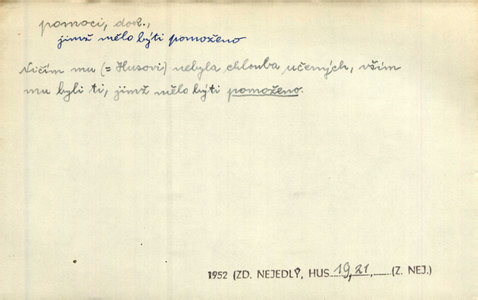 pomoci, dok.,
jimž mělo býti pomoženo
Ničím mu (= Husovi) nebyla chlouba učených, vším
mu byli ti, jimž mělo býti pomoženo.
1952 (ZD. NEJEDLÝ, HUS 19, 21 (Z. NEJ.)